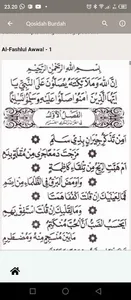 23.20
Qosidah Burdah
Al-Fashlul Awwal - 1
بسم الله الرحمن الرحيم
إن الله وملائكته يصلون على النبي يا
أيها الذين آمنوا صلوا عليه وسلموا تسليما
الفصل الأول
أمن تذكر جيران بذي سلم
مزجت دمعا جرى من مقلة بدم
أم هبت الريح من تلقاء كاظمة
وأومض البرق في الظلماء من إضم
فما لعينيك إن قلت اكففا همتا
وما لقلبك إن قلت استفق يهم
أيحسب الصب أن الحب منكتم
ما بين منسجم منه ومضطرم